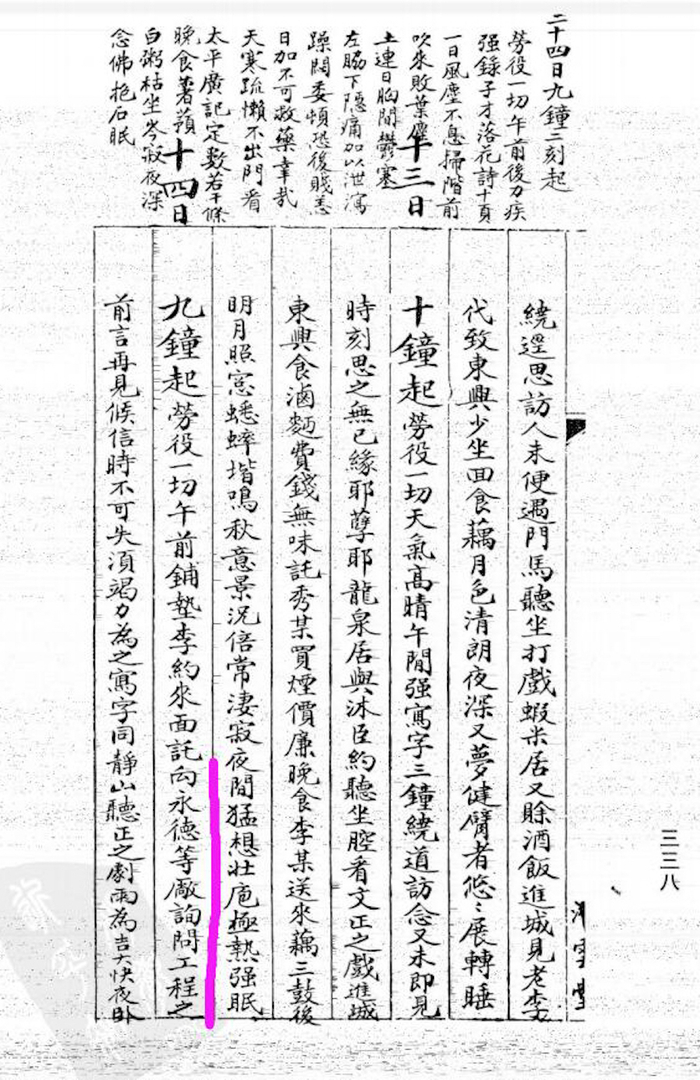 二十四日九鐘二刻起
勞役一切午前後力疾
強錄子才落花詩十頁
一日風塵不息掃階前
吹來敗葉塵
土連日胸間鬱塞
左脇下隱痛加以泄瀉
躁悶委頓恐後賤恙
日加不可救藥幸哉
天寒疏懶不出門看
太平廣記定數若干條
晚食薯蕷
白粥枯坐岑寂夜深
念佛抱石眠
繞逕思訪人未便過門馬聽坐打戲蝦米居又賒酒飯進城見老李
代致東興少坐回食藕月色清朗夜深又夢健臂者悠〻展轉睡
十三日
十鐘起勞役一切天氣高晴午間强寫字三鐘繞道訪念又未即見
時刻思之無已緣耶孽耶龍泉居與沐臣約聽坐腔看文正之戲進城
東興食滷麵費錢無味託秀某買煙價廉晚食李某送來藕三鼓後
明月照窓蟋蟀堦鳴秋意景況倍常淒寂夜間猛想壯庖極熱强眠
十四日
九鐘起勞役一切午前鋪墊李約來面託向永德等廠詢問工程之
前言再見候信時不可失湏竭力為之寫字同靜山聽正之劇雨為吉大快夜卧
三三八